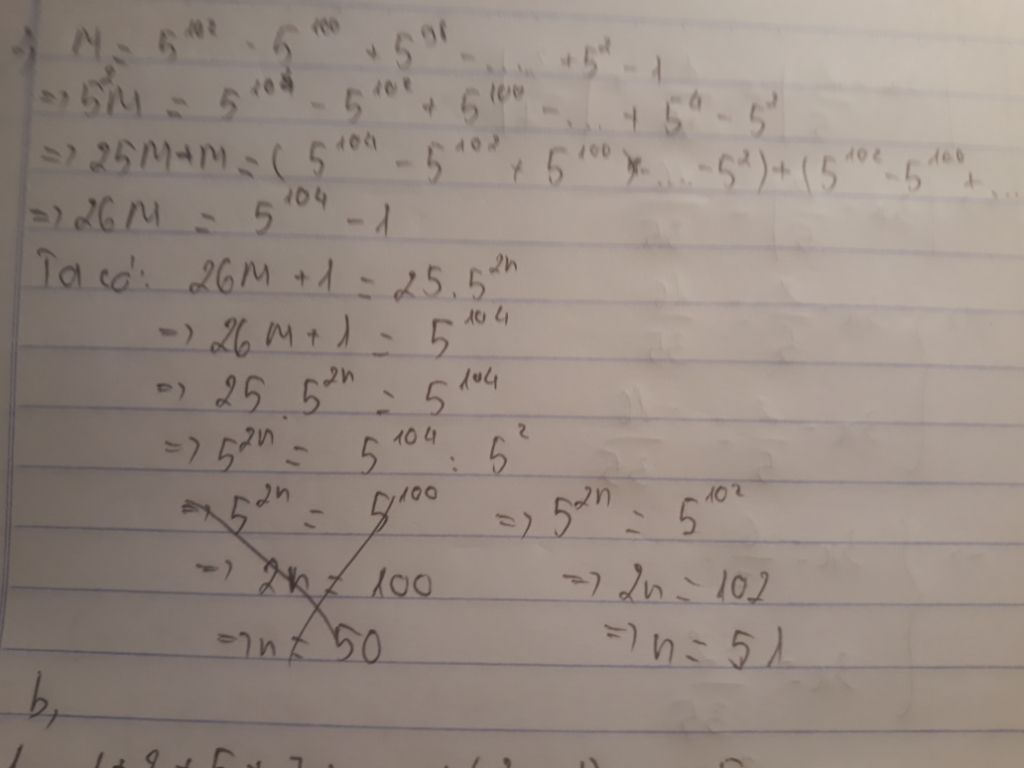 M = 5^102 - 5^100 + 5^98 - .... + 5^2 - 1
=> 5^2M = 5^104 - 5^102 + 5^100 - ... + 5^4 - 5^2
=> 25M + M = (5^104 - 5^102 + 5^100 - .... - 5^2) + (5^102 - 5^100 + ...
=> 26M = 5^104 - 1
Ta có: 26M + 1 = 25 . 5^2n
=> 26M + 1 = 5^104
=> 25 . 5^2n = 5^104
=> 5^2n = 5^104 : 5^2
=> 5^2n = 5^100 => 5^2n = 5^102
=> 2n = 100 => 2n = 102
=> n = 50 => n = 51
b,